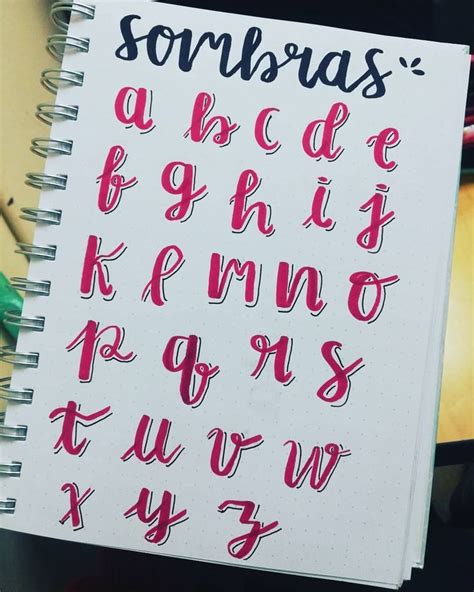 sombras
a b c d e
f g h i j
k l m n o
p q r s
t u v w
x y z